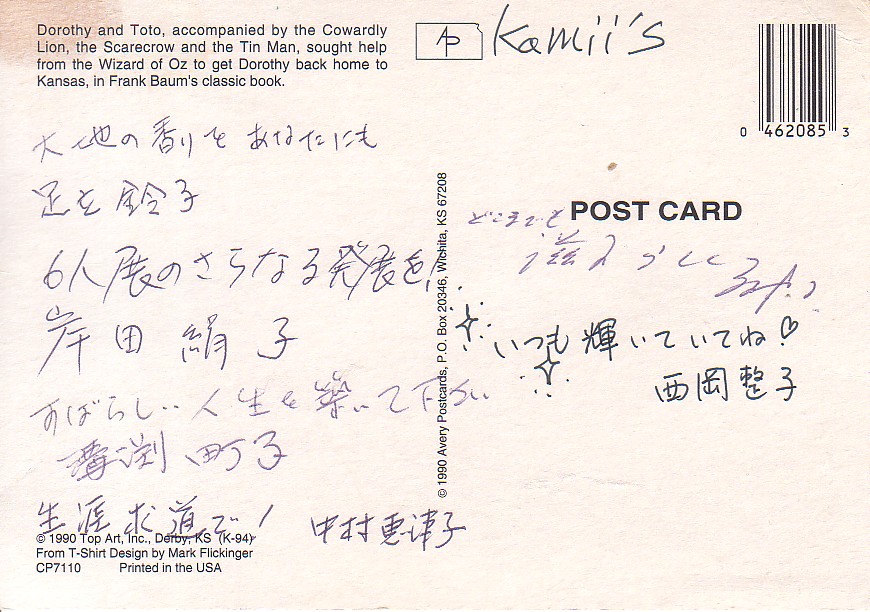 Dorothy and Toto, accompanied by the Cowardly
Lion, the Scarecrow and the Tin Man, sought help
from the Wizard of Oz to get Dorothy back home to
Kansas, in Frank Baum's classic book.
AP Kamii's
0 462085 3
大地の香りをあなたにも
鈴子
6人展のさらなる発展を!
岸田 絹子
すばらしい人生を築いて下さい
溝渕 町子
生涯求道で!
中村恵津子
© 1990 Top Art, Inc., Derby, KS (K-94)
From T-Shirt Design by Mark Flickinger
CP7110 Printed in the USA
© 1990 Avery Postcards, P.O. Box 20346, Wichita, KS 67208
POST CARD
どこまでも
いつも輝いていてね!♡
西岡整子